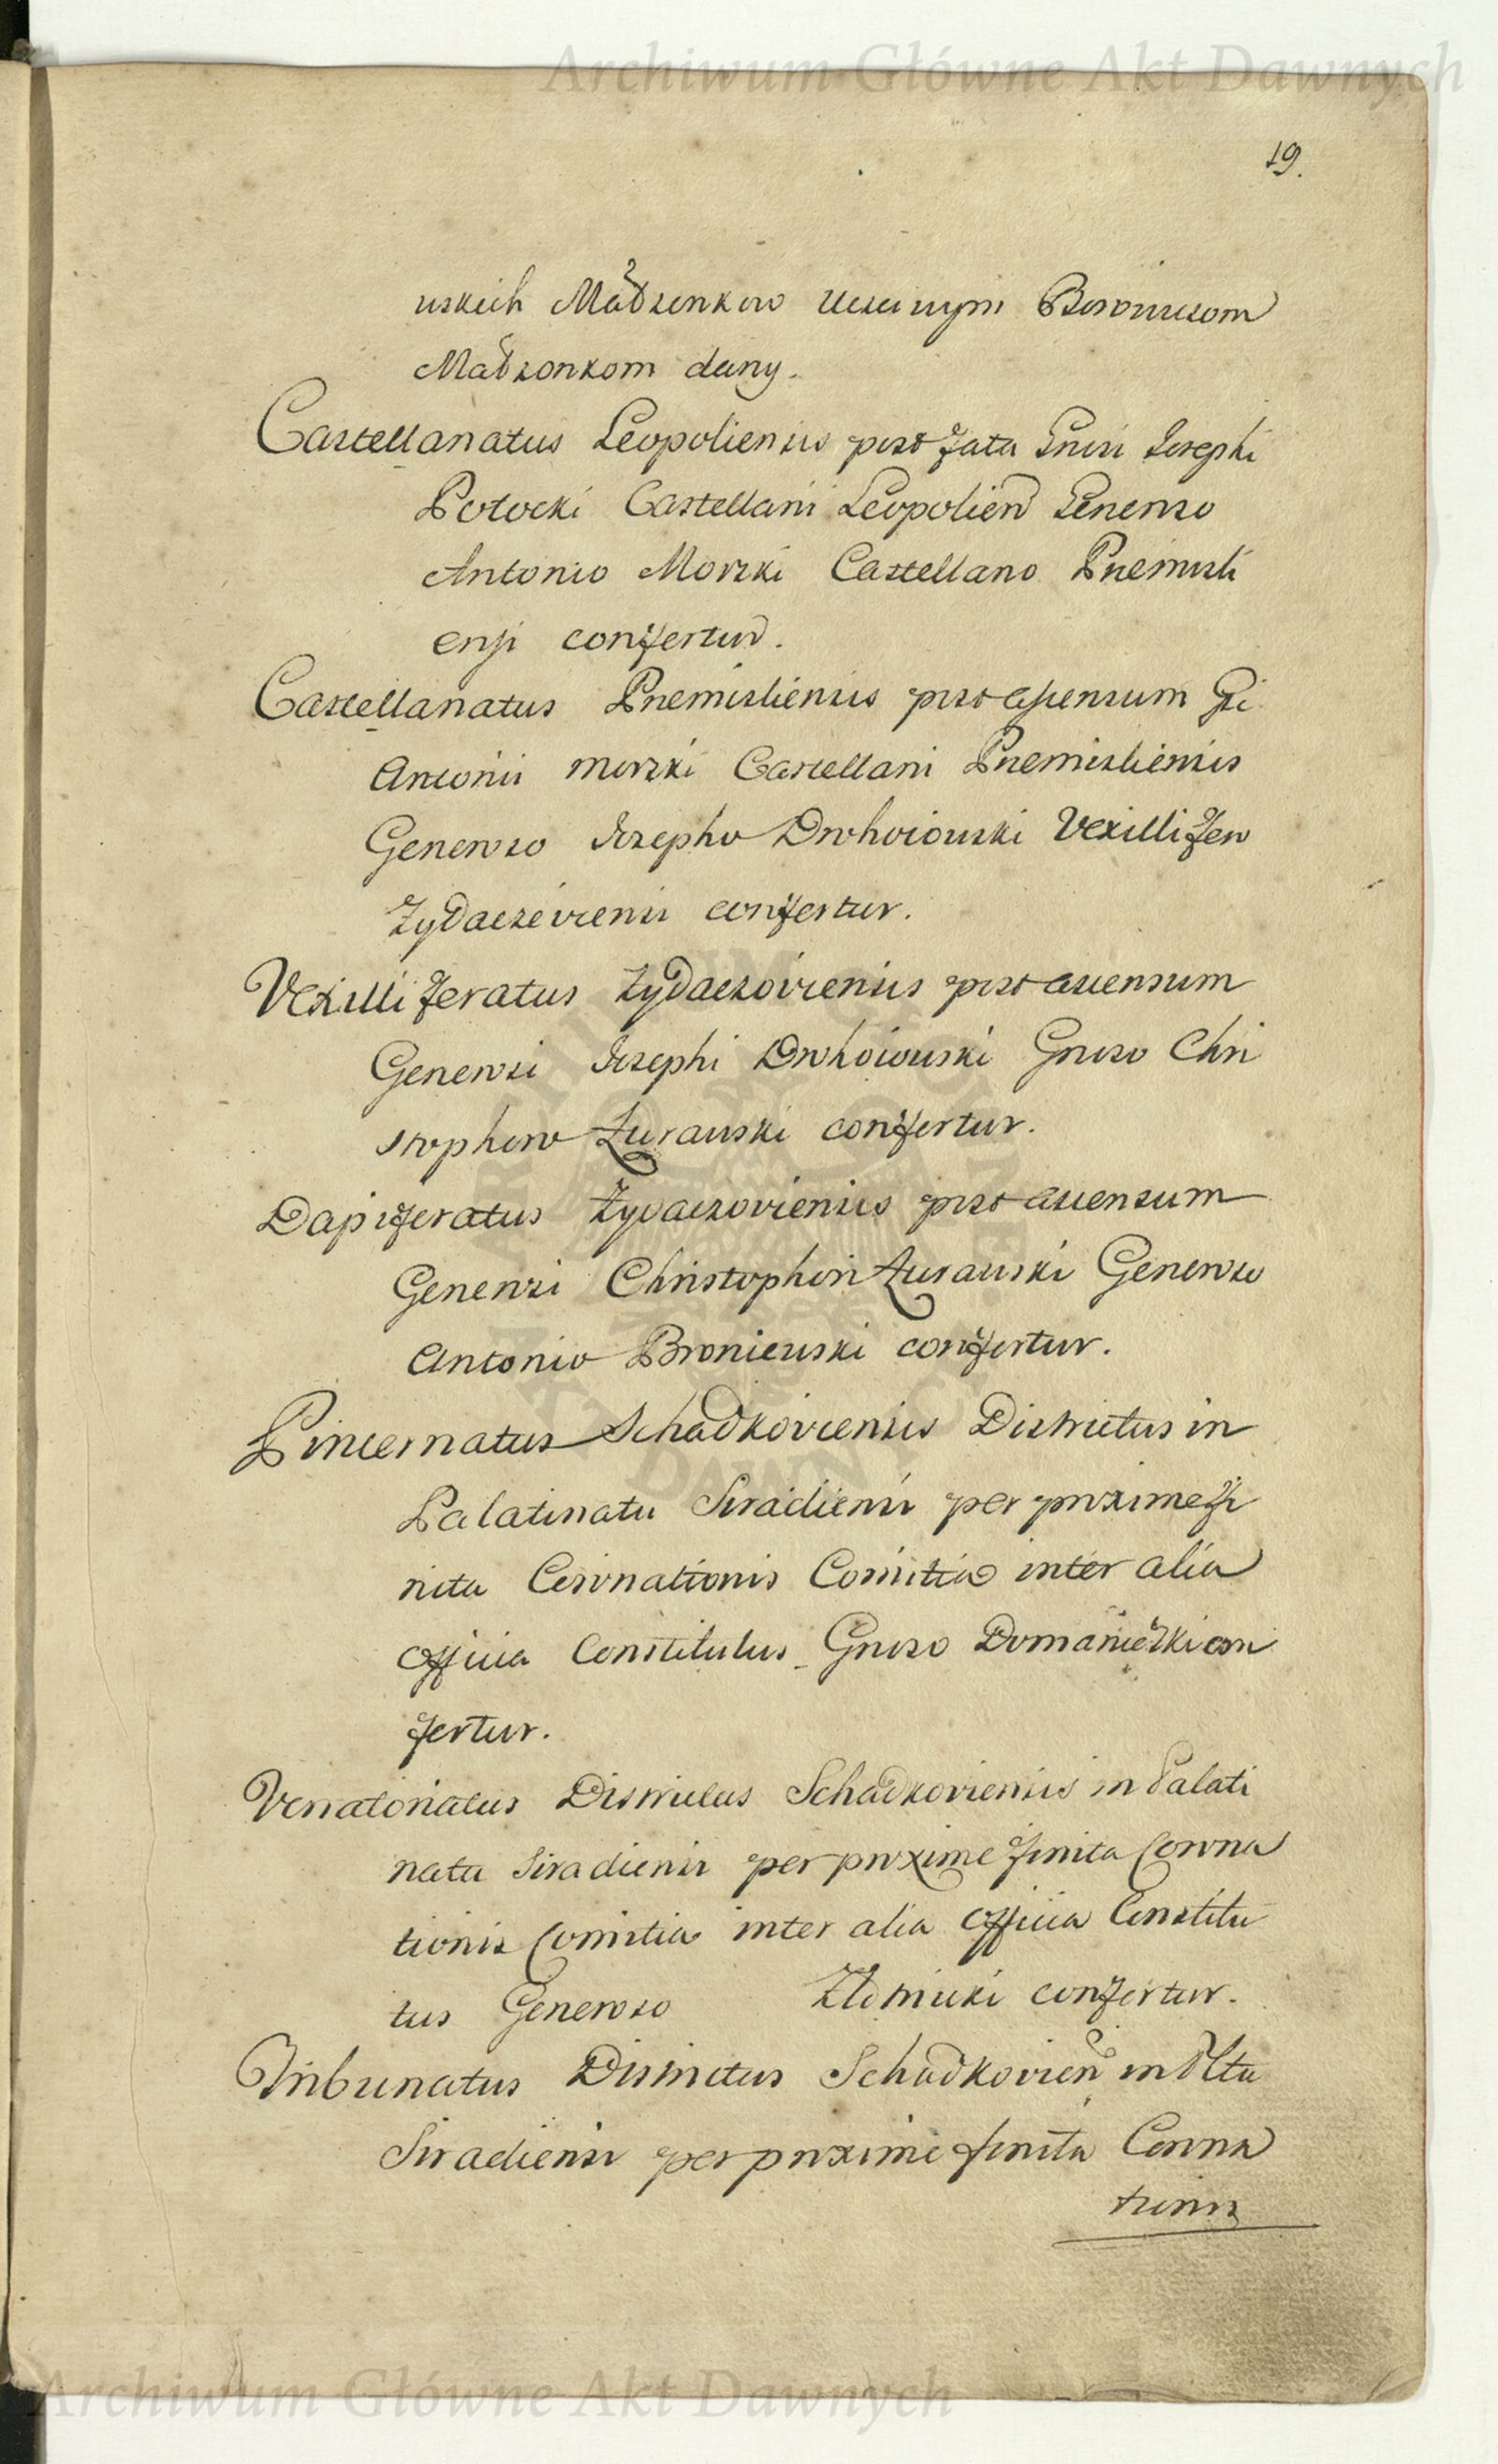 Archiwum Główne Akt Dawnych
19.
uskich Małżonkow Uczciwym Borowiczom
Małżonkom dany.
Castellanatus Leopoliensis post fata Gnrsi Josephi
Potocki Castellani Leopolien Generoso
Antonio Morski Castellano Premisli
ensi confertur.
Castellanatus Premisliensis post ascensum Gsi
Antonii Morski Castellani Premisliensis
Generoso Josepho Drohoiouski Vexillifero
Zydaczoviensi confertur.
Vexilliferatus Zydaczoviensis post ascensum
Generosi Josephi Drohoiouski Gnroso Chri
stophoro Zurauski confertur.
Dapiferatus Zydaczoviensis post ascensum
Generosi Christophori Zurauski Generoso
Antonio Bronieuski confertur.
Pincernatus Schadkoviensis Districtus in
Palatinatu Siradiensi per proxime fi
nita Coronationis Comitia inter alia
Officia Constitutus Gnroso Domaniecki con
fertur.
Venatoriatus Districtus Schadkoviensis in Palati
natu Siradiensi per proxime finita Corona
tionis Comitia inter alia Officia Constitu
tus Generoso Złotnicki confertur.
Tribunatus Districtus Schadkovien in Pltu
Siradiensi per proxime finita Corona
tionis
Archiwum Główne Akt Dawnych